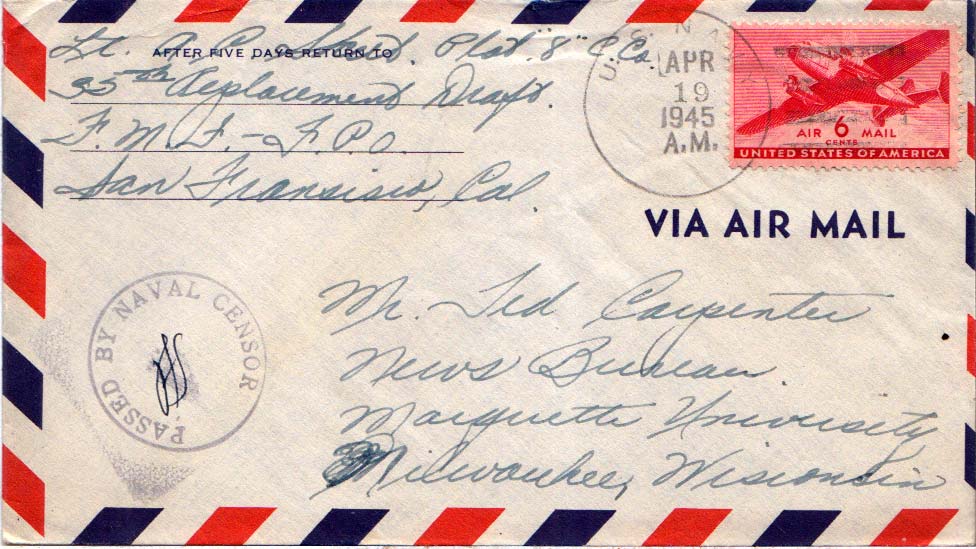 AFTER FIVE DAYS RETURN TO
Lt. Plat. "8" C. Co.
35th Replacement Draft
F.M.F. - F.P.O.
San Fransisco, Cal.
U.S. N
APR
19
1945
A.M.
AIR 6 MAIL
CENTS
UNITED STATES OF AMERICA
VIA AIR MAIL
PASSED BY NAVAL CENSOR
Mr. Ted Carpenter
News Bureau
Marquette University
Milwaukee, Wisconsin